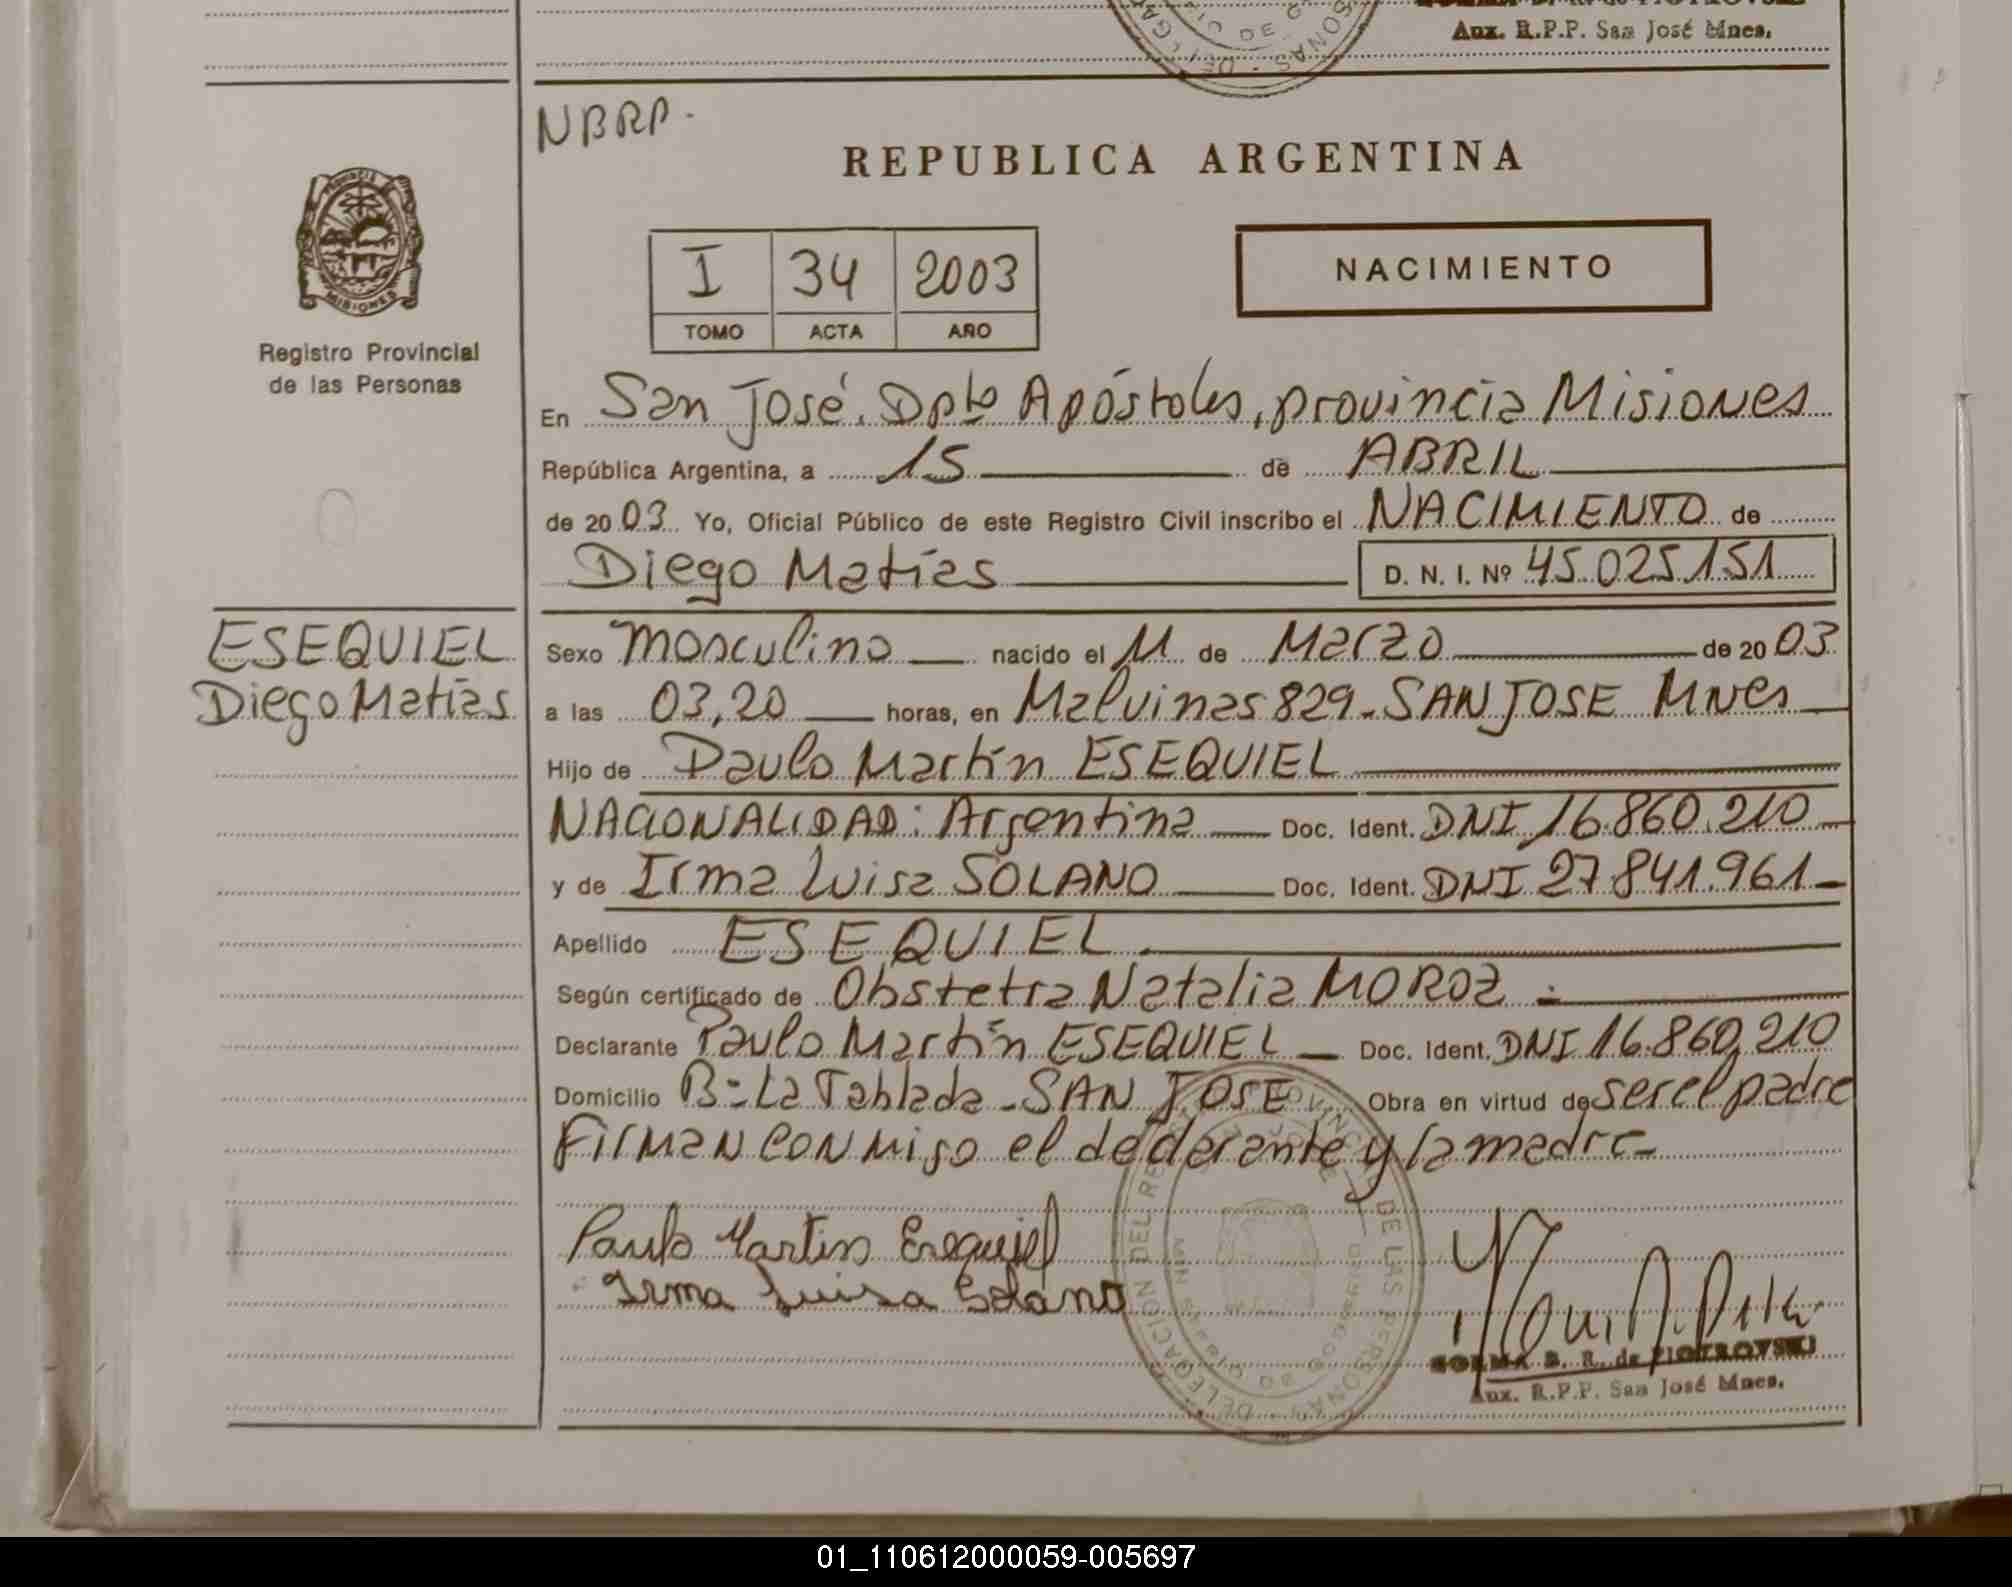 Aux. R.P.P. San José Mnes.
NBRP.
REPUBLICA ARGENTINA
I 34 2003
TOMO ACTA AÑO
NACIMIENTO
MISIONES
Registro Provincial
de las Personas
En San José. Dpto Apóstoles, provincia Misiones
República Argentina, a 15 de ABRIL
de 2003 Yo, Oficial Público de este Registro Civil inscribo el NACIMIENTO de
Diego Matías D. N. I. Nº 45.025.151
ESEQUIEL
Diego Matías
Sexo Masculino nacido el 11 de Marzo de 2003
a las 03,20 horas, en Malvinas 829 - SAN JOSE Mnes
Hijo de Paulo Martín ESEQUIEL
NACIONALIDAD: Argentina Doc. Ident. DNI 16.860.210
y de Irma Luisa SOLANO Doc. Ident. DNI 27.841.961
Apellido ESEQUIEL
Según certificado de Obstetra Natalia MOROZ
Declarante Paulo Martín ESEQUIEL Doc. Ident. DNI 16.860.210
Domicilio Bº La Tablada - SAN JOSE Obra en virtud de ser el padre
Firman conmigo el declarante y la madre
Paulo Martin Esequiel
Irma Luisa Solano
DELEGACION DEL REGISTRO PROVINCIAL DE LAS PERSONAS
NORMA B. R. de PIOTROVSKI
Aux. R.P.P. San José Mnes.
01_110612000059-005697